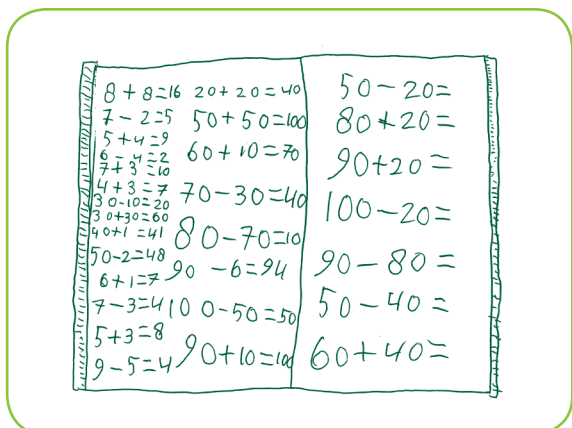 8 + 8 = 16
7 - 2 = 5
5 + 4 = 9
6 - 4 = 2
7 + 3 = 10
4 + 3 = 7
30 - 10 = 20
30 + 30 = 60
40 + 1 = 41
50 - 2 = 48
6 + 1 = 7
7 - 3 = 4
5 + 3 = 8
9 - 5 = 4
20 + 20 = 40
50 + 50 = 100
60 + 10 = 70
70 - 30 = 40
80 - 70 = 10
90 - 6 = 94
100 - 50 = 50
90 + 10 = 100
50 - 20 =
80 + 20 =
90 + 20 =
100 - 20 =
90 - 80 =
50 - 40 =
60 + 40 =